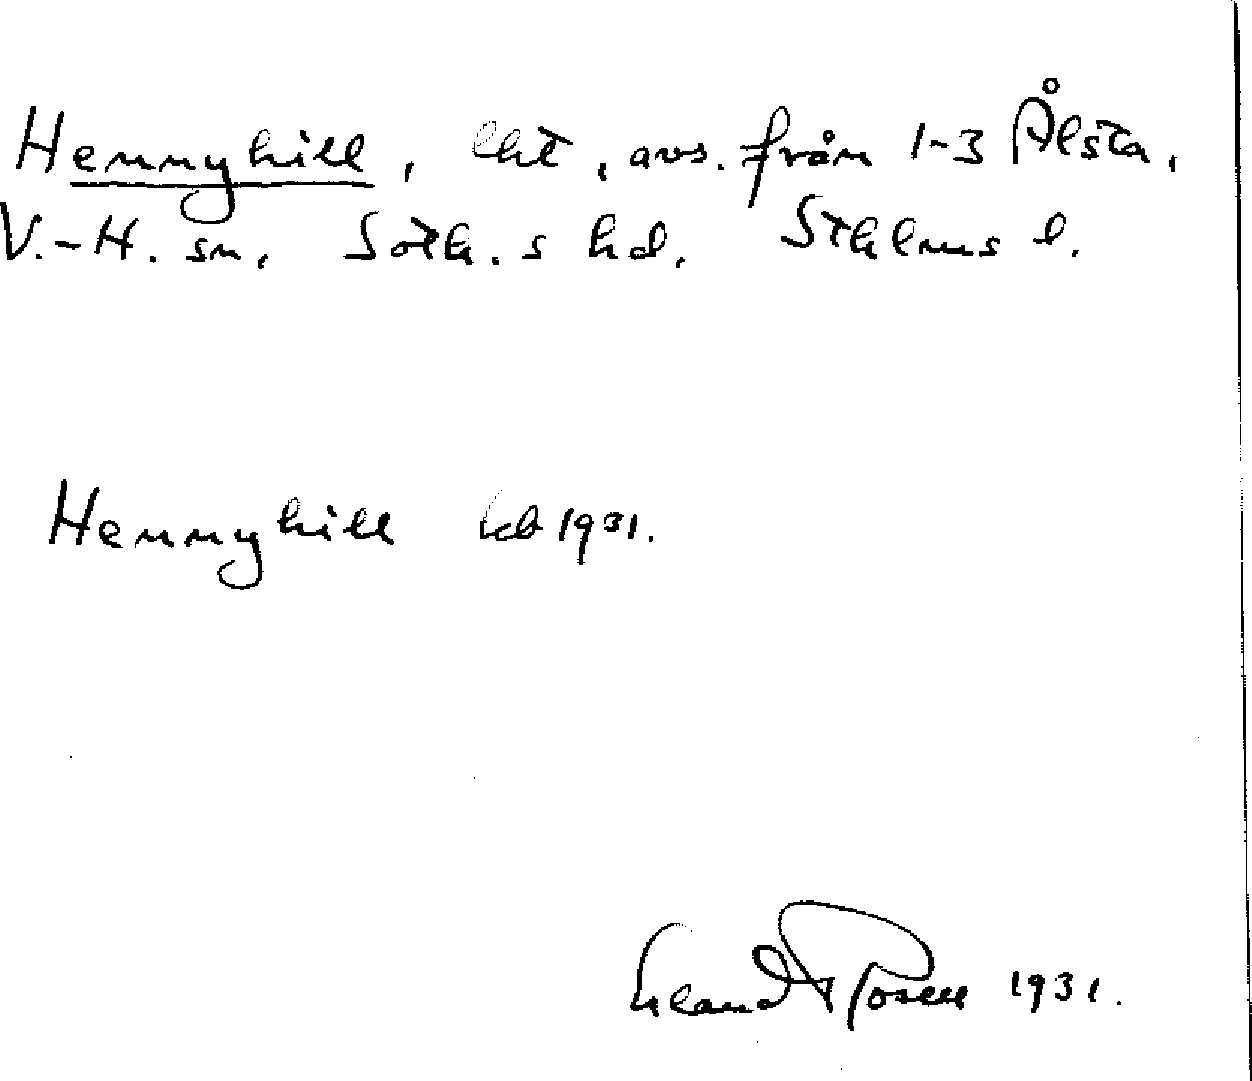 Hennyhill, lht, avs. från 1-3 Ålsta,
V.-H. sn, Soth. s hd, Sthlms l.
Hennyhill kb 1931.
Erland Rosell 1931.